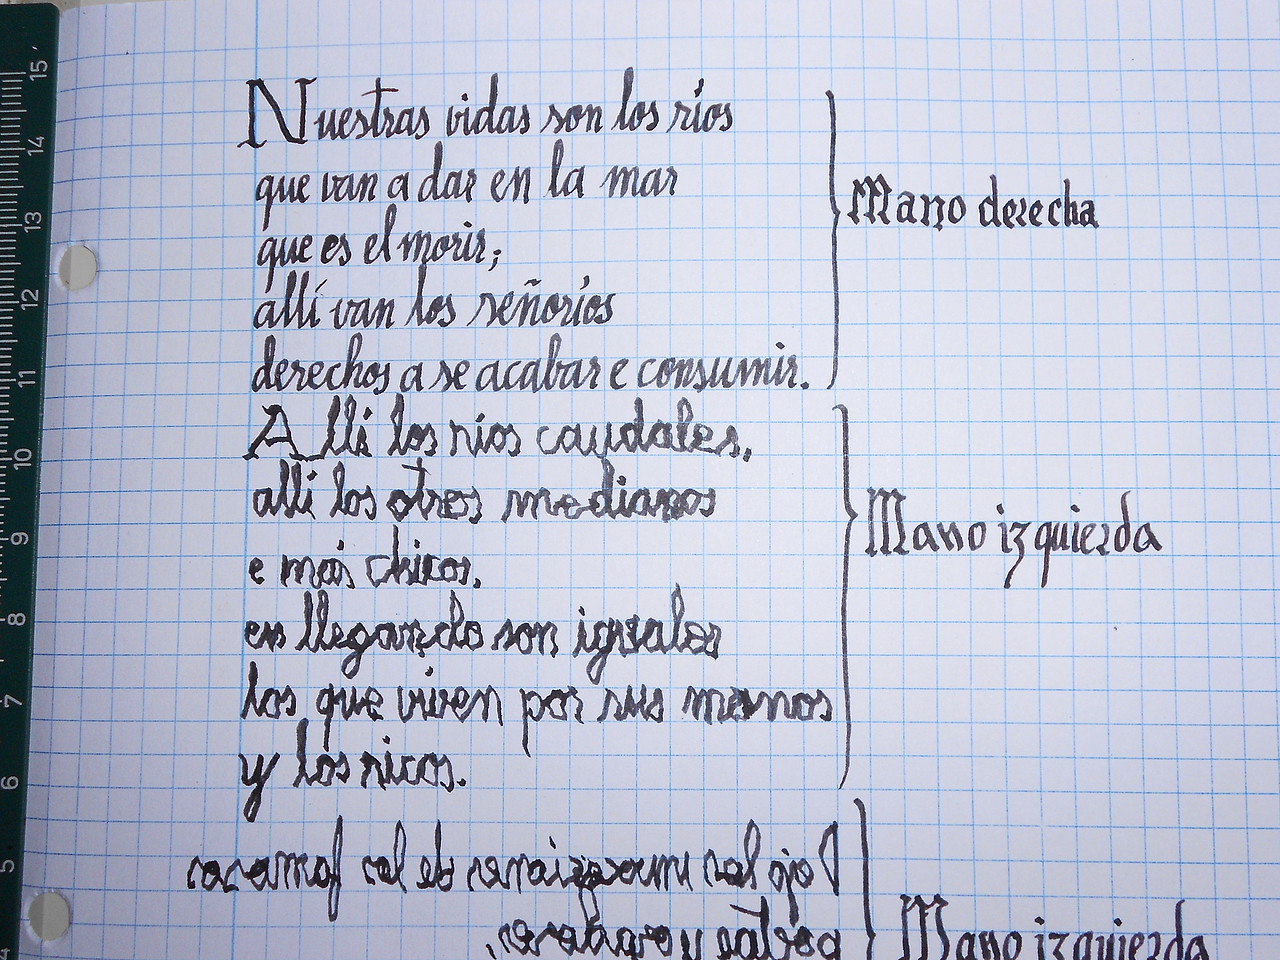 Nuestras vidas son los ríos
que van a dar en la mar
que es el morir;
allí van los señoríos
derechos a se acabar e consumir.
Mano derecha
Allí los ríos caudales,
allí los otros medianos
e más chicos,
en llegando son iguales
los que viven por sus manos
y los ricos.
Mano izquierda
Dejo las invocaciones de los famosos
poetas y oradores,
Mano izquierda
15
14
13
12
11
10
9
8
7
6
5
4